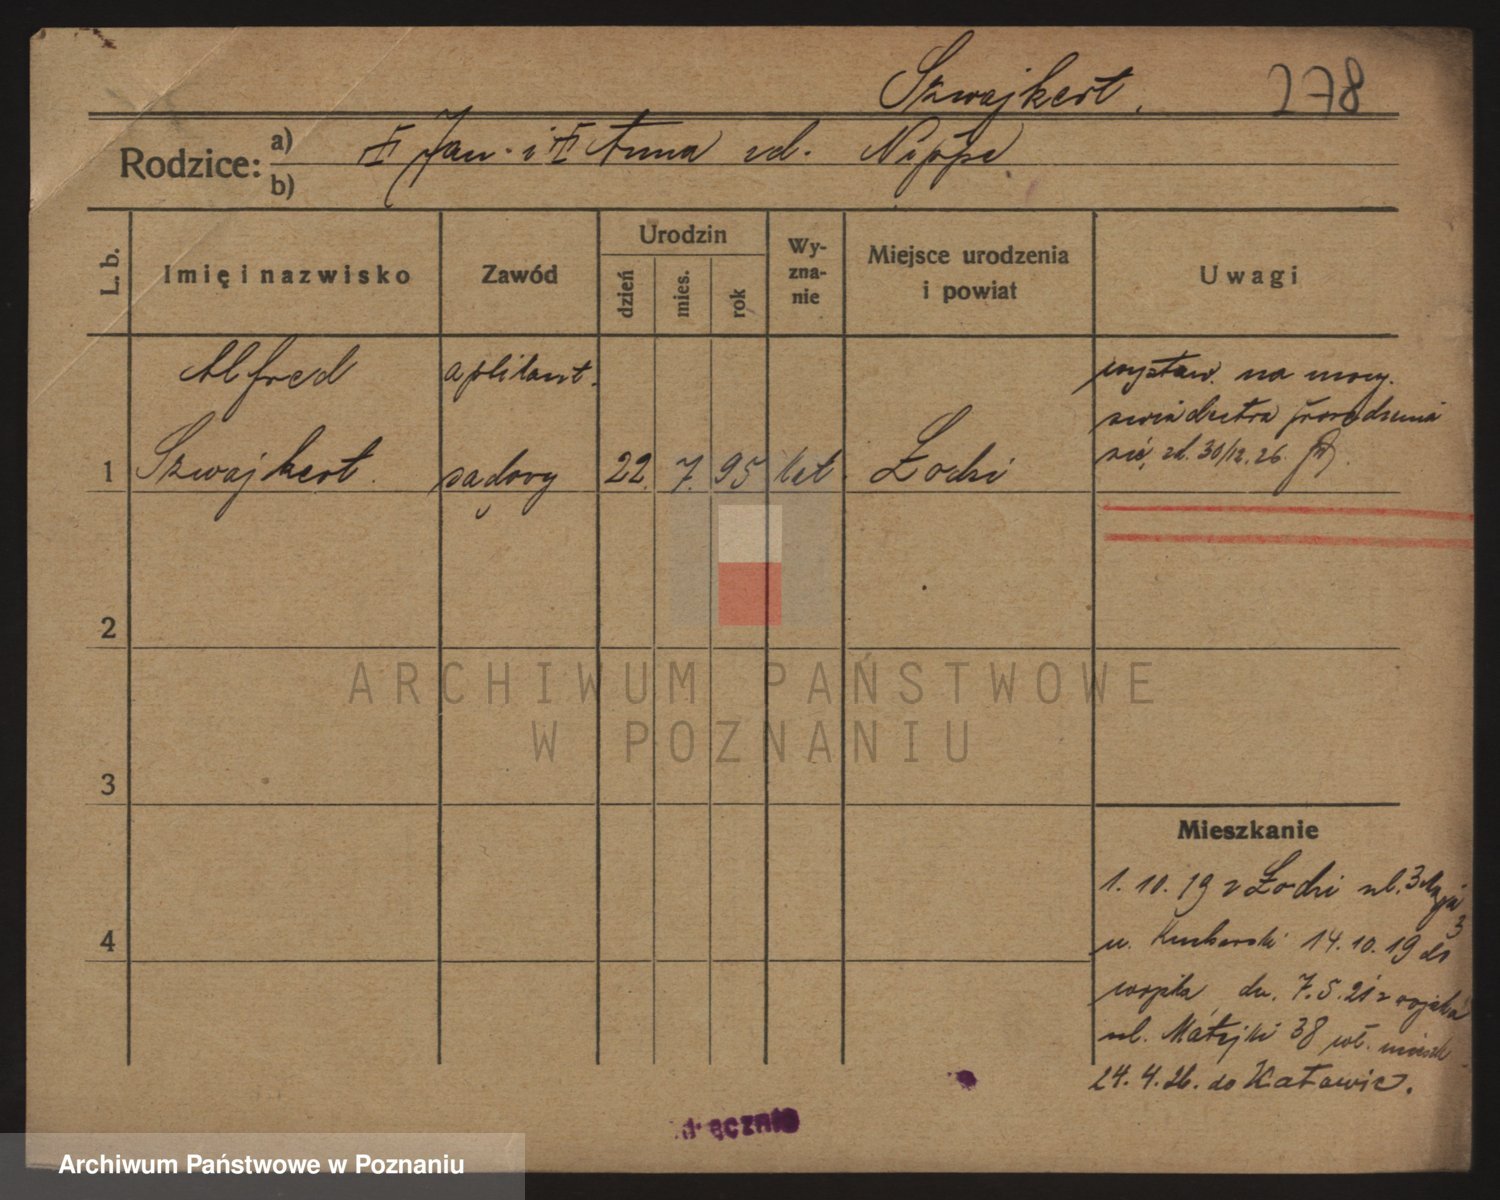 Szwajkert.
278
Rodzice:
a) Jan i Anna zd. Nippe
b)
L. b.
Imię i nazwisko
Zawód
Urodzin
dzień
mies.
rok
Wy-
zna-
nie
Miejsce urodzenia
i powiat
Uwagi
Alfred
aplikant
wystaw. na mocy
świadectwa
1
Szwajkert
sądowy
22. 7. 95
kat.
Łodzi
się zd. 30/12. 26.
2
3
4
Mieszkanie
1. 10. 19 z Łodzi ul. 3 Maja 3
u. Kucharski 14. 10. 19 do
wojska dn. 7. 5. 21 z wojska
ul. Matejki 38 wł. mieszk.
24. 4. 26. do Katowic.
ręcznie
ARCHIWUM PAŃSTWOWE
W POZNANIU
Archiwum Państwowe w Poznaniu